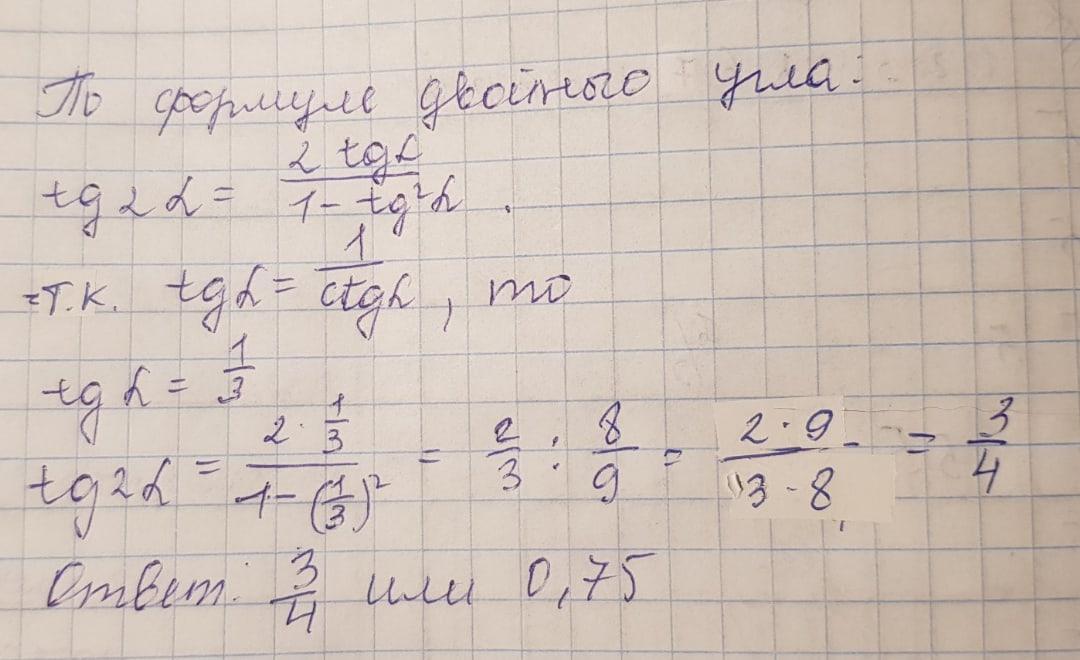 По формуле двойного угла:
tg 2α = 2 tgα / 1 - tg²α .
=т.к. tgα = 1 / ctgα , то
tgα = 1/3
tg2α = 2 · 1/3 / 1 - (1/3)² = 2/3 : 8/9 = 2 · 9 / 3 · 8 = 3/4
Ответ: 3/4 или 0,75